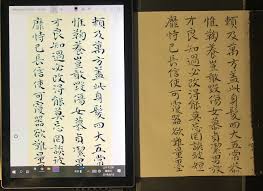 賴及萬方盖此身髮四大五常
惟鞠養豈敢毀傷女慕貞潔
才良知過必改得能莫忘罔談彼
靡恃己長信使可覆器欲難量墨
賴及萬方盖此身髮四大五常
惟鞠養豈敢毀傷女慕貞潔
才良知過必改得能莫忘罔談彼短
靡恃己長信使可覆器欲難量墨